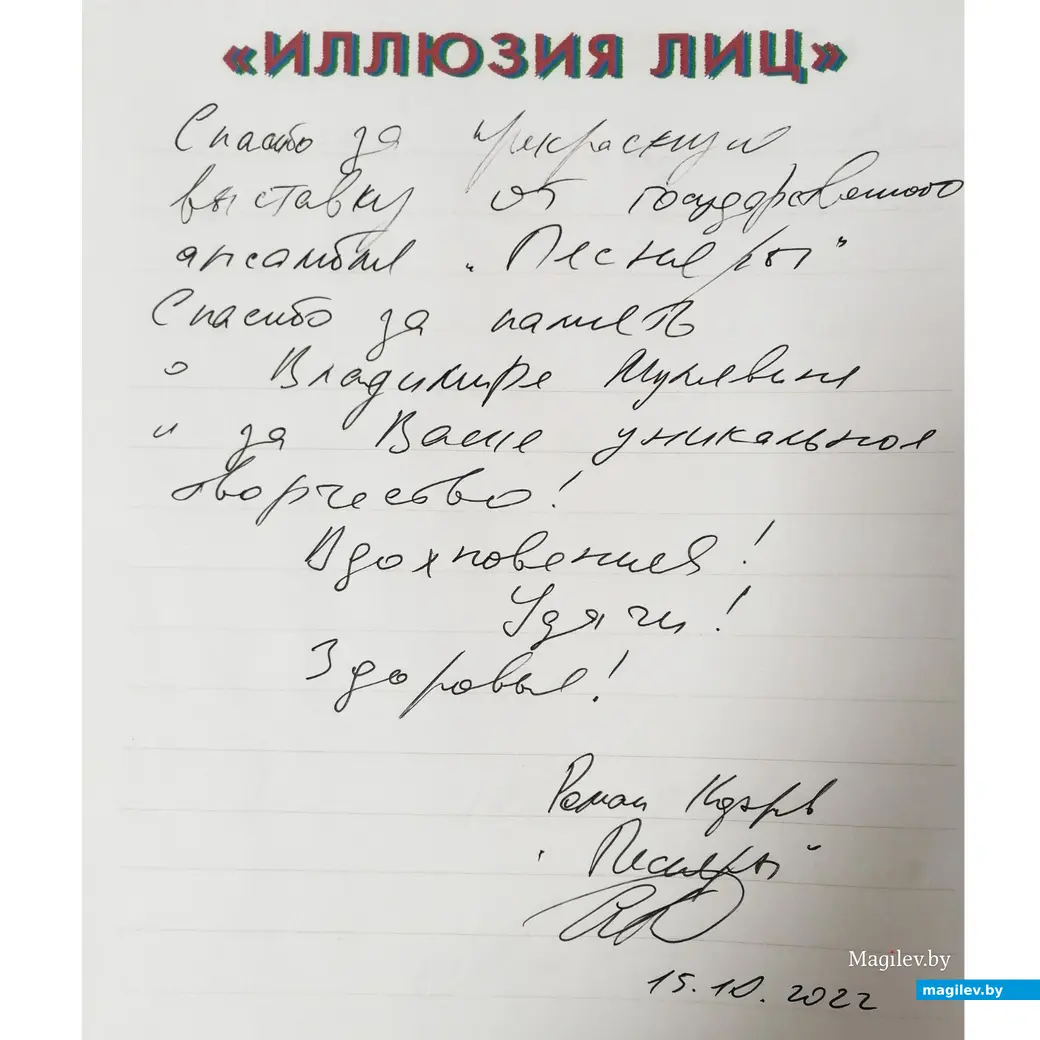 «ИЛЛЮЗИЯ ЛИЦ»
Спасибо за прекрасную
выставку от государственного
ансамбля „Песняры"
Спасибо за память
о Владимире Мулявине
и за Ваше уникальное
творчество!
Вдохновения!
Удачи!
Здоровья!
Роман
„Песняры"
15.10.2022
Magilev.by
magilev.by